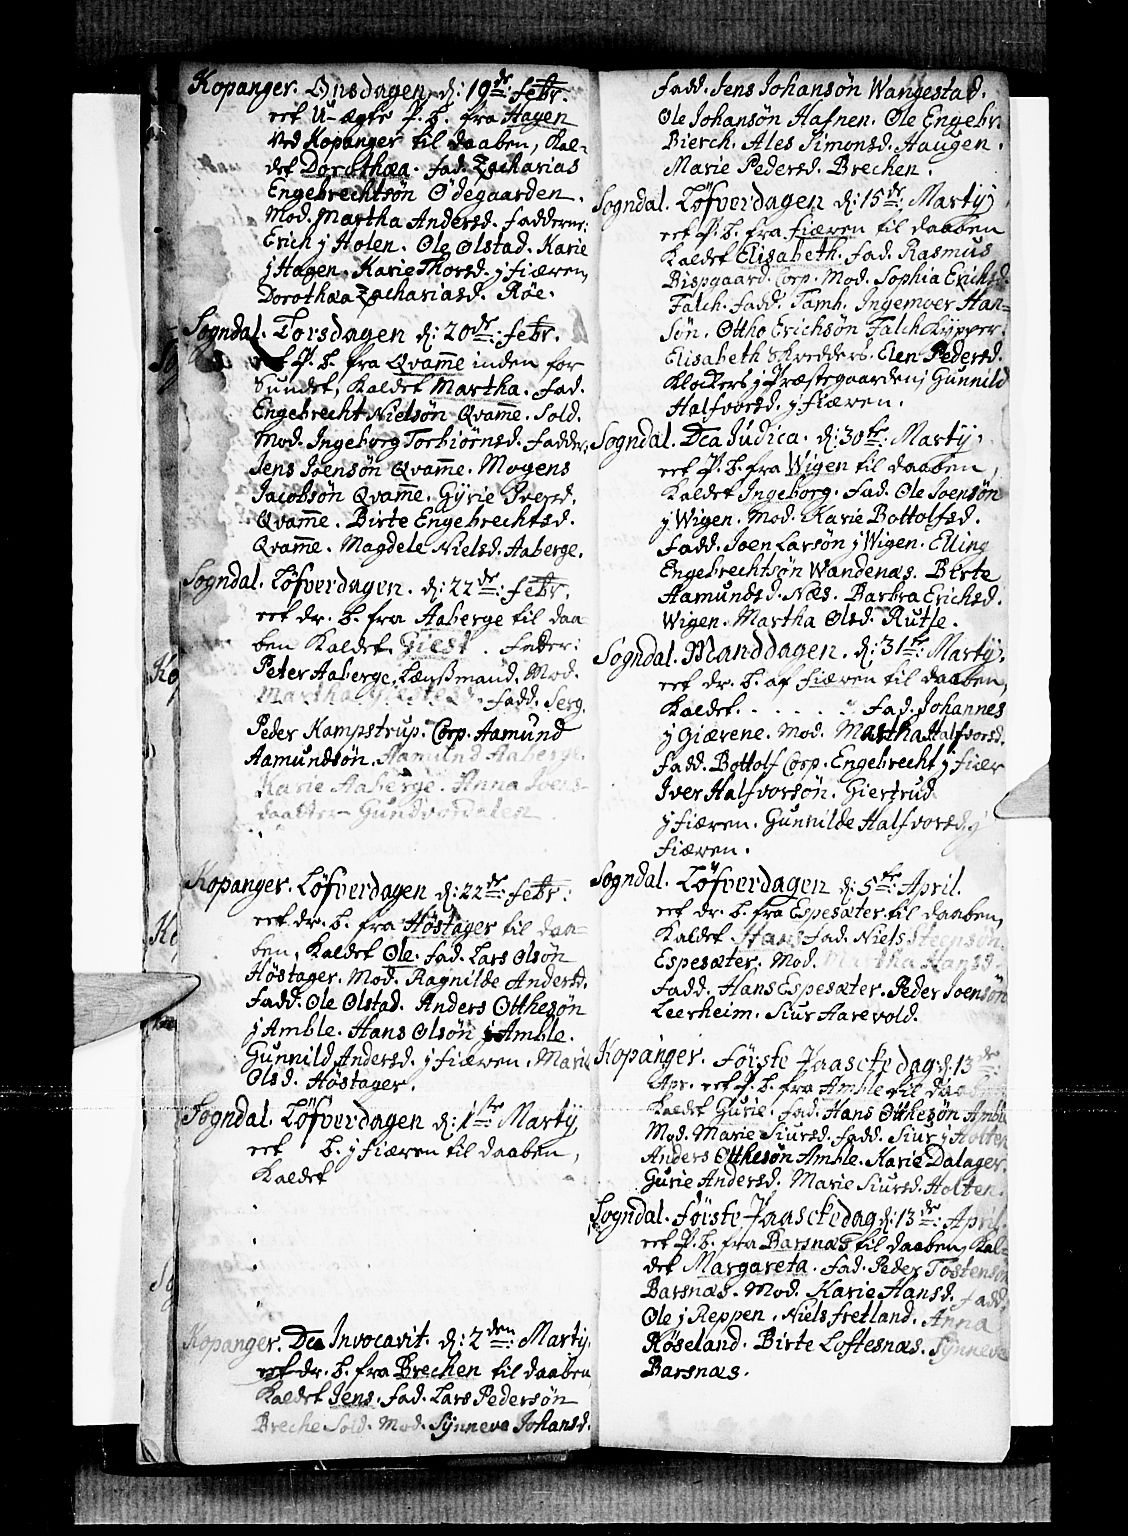 Kopanger. Onsdagen, d: 19de febr.
eet U-ægte P. b. fra Hagen
ved Kopanger til daaben, Kal-
det Dorothæa. fad. Zacharias
Engebrechtsøn Ødegaarden.
Mod. Martha Andersd. fadderne:
Erich j Holen. Ole Olstad. Karie
j Hagen. Karie Thorsd. j fiæren,
Dorothæa Zachariasd. Røe.
Sogndal. Torsdagen d: 20de: febr.
eet P. b. fra Qvam̅e inden for
Sundet, Kaldet Martha. fad.
Engebrecht Nielsøn Qvam̅e. Sold.
Mod. Ingeborg Torbiørnsd. fadder,
Jens Joensøn Qvam̅e. Mogens
Jacobsøn Qvam̅e. Gÿrie Iversd.
Qvam̅e. Birte Engebrechtsd.
Qvam̅e. Magdele Nielsd. Aaberge.
Sogndal. Løfverdagen. d: 22de: febr.
eet dr. b. fra Aaberge til daa-
ben Kaldet Giest. Fader:
Peter Aaberge, Lænßmand. Mod.
Martha fadd. Serg.
Peder Kampstrup. Corp. Aamund
Aamundsøn. Aamund Aaberge.
Karie Aaberge. Anna Joens-
daatter Gundvordalen.
Kopanger. Løfverdagen d: 22de: febr:
eet dr. b. fra Høstager til daa-
ben, Kaldet Ole. fad. Lars Olsøn
Høstager. Mod. Ragnilde Andersd.
fadd. Ole Olstad. Anders Otthesøn
j Amble. Hans Olsøn j Amble.
Gunnild Andersd. j fiæren. Marie
Olsd. Høstager.
Sogndal. Løfverdagen d: 1te Martÿ
eet b. j fiæren til daaben,
Kaldet
Kopanger. Dca Invocavit. d: 2den: Martÿ.
eet dr. b. fra Brechen til daaben
Kaldet Jens. fad. Lars Pedersøn
Breche Sold. Mod. Sÿnneve Johansd.
fadd. Jens Johansøn Wangestad.
Ole Johansøn Hafnen. Ole Engebr
Bierch. Ales Simonsd. Haugen.
Marie Pedersd. Brechen.
Sogndal. Løfverdagen d: 15de: Martÿ
eet P. b. fra fiæren til daaben
Kaldet Elisabeth. fad. Rasmus
Bispgaard. Corp. Mod. Sophia Erichsd.
Falch. fadd. Tamb. Ingemoer Han-
søn. Ottho Erichsøn Falch
Elisabeth Skredders. Elen Pedersd.
Klockers j Præstegaarden, Gunnild
Halfvorsd. j fiæren.
Sogndal. Dca Judica. d: 30te: Martÿ.
eet P. b. fra Wigen til daaben,
Kaldet Ingeborg. fad. Ole Joensøn
j Wigen. Mod. Karie Bottolfsd.
fadd. Joen Larsøn j Wigen. Elling
Engebrechtsøn Wandenæs. Birte
Aamundsd. Næs. Barbra Erichsd.
Wigen. Martha Olsd. Rutle.
Sogndal. Manddagen. d: 31te: Martÿ.
eet dr. b. af fiæren til daaben,
Kaldet. . . . . . fad. Johannes
j Giærene. Mod. Martha Halfvorsd.
fadd. Bottolf Corp. Engebrecht j fiær
Iver Halfvorsøn. Giertrud
j fiæren. Gunnilde Halfvorsd. j
fiæren.
Sogndal. Løfverdagen d: 5te: April.
eet dr. b. fra Espesæter til daaben,
Kaldet Hans fad. Niels Steensøn
Espesæter. Mod. Martha Hansd.
fadd. Hans Espesæter. Peder Joensøn
Leerheim. Siur Aarevold.
Kopanger. Første Paaschedag d: 13de:
Apr. eet P. b. fra Amble til daaben
Kaldet Gurie. fad. Hans Otthesøn Amb
Mod. Marie Siursd. fadd. Siur j Holten
Anders Otthesøn Amble. Karie Dalager.
Gurie Andersd. Marie Siursd. Holten.
Sogndal. Første Paaschedag d: 13de: April.
eet P. b. fra Barsnæs til daaben, Kal-
det Margareta. fad. Peder Tostensøn
Barsnæs. Mod. Karie Hansd. fadd.
Ole j Reppen. Niels fretland. Anna
Røseland. Birte Loftesnæs. Sÿnneve
Barsnæs.